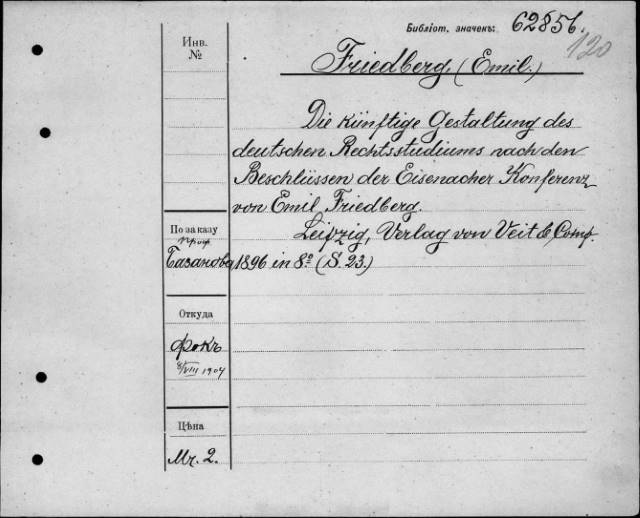 Библіот. значекъ: 62856.
120
Инв.
№
Friedberg, (Emil.)
Die künftige Gestaltung des
deutschen Rechtsstudiums nach den
Beschlüssen der Eisenacher Konferenz
von Emil Friedberg.
Leipzig, Verlag von Veit & Comp.
1896 in 8º (S. 23.)
По заказу
проф.
Базанова
Откуда
Фокъ
8/VIII 1904
Цѣна
Mr. 2.